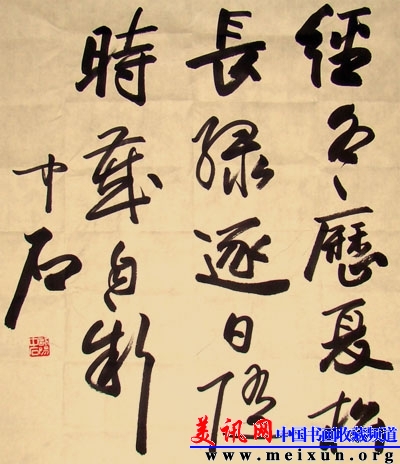 經冬歷夏松
長綠逐日隨
時歲自新
中石
美讯网中国书画收藏频道
www.meixun.org